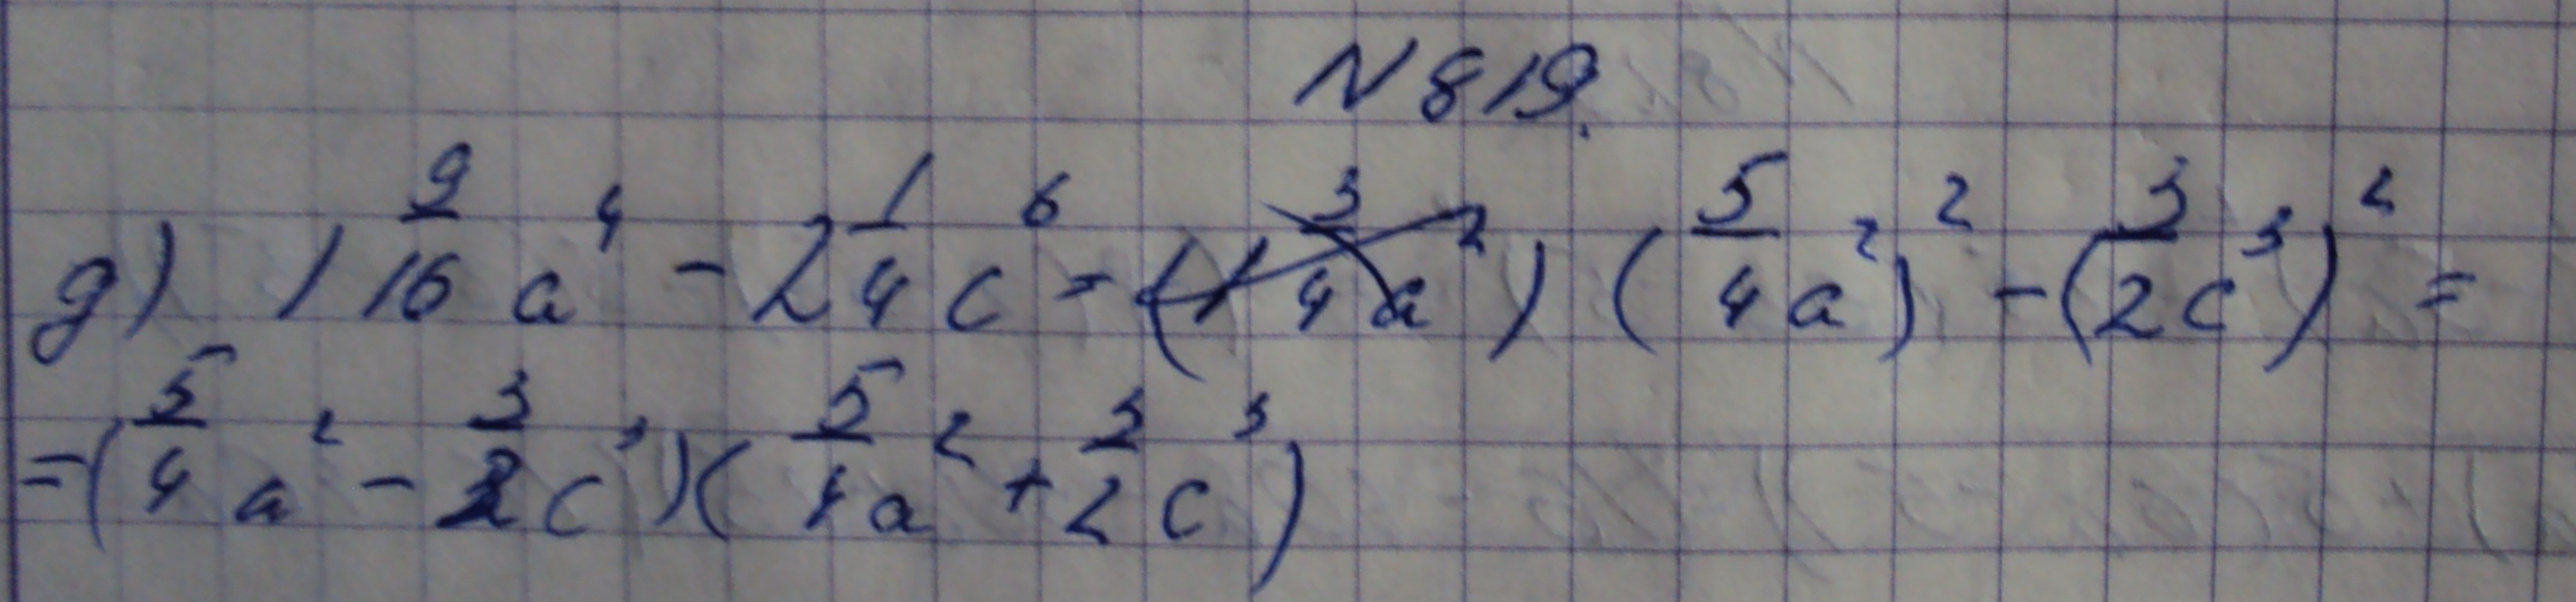 N 819.
g) 1 9/16 a⁴ - 2 1/4 c⁶ = (1 3/4 a²) (5/4 a²)² - (3/2 c³)² =
= (5/4 a² - 3/2 c³)(5/4 a² + 3/2 c³)